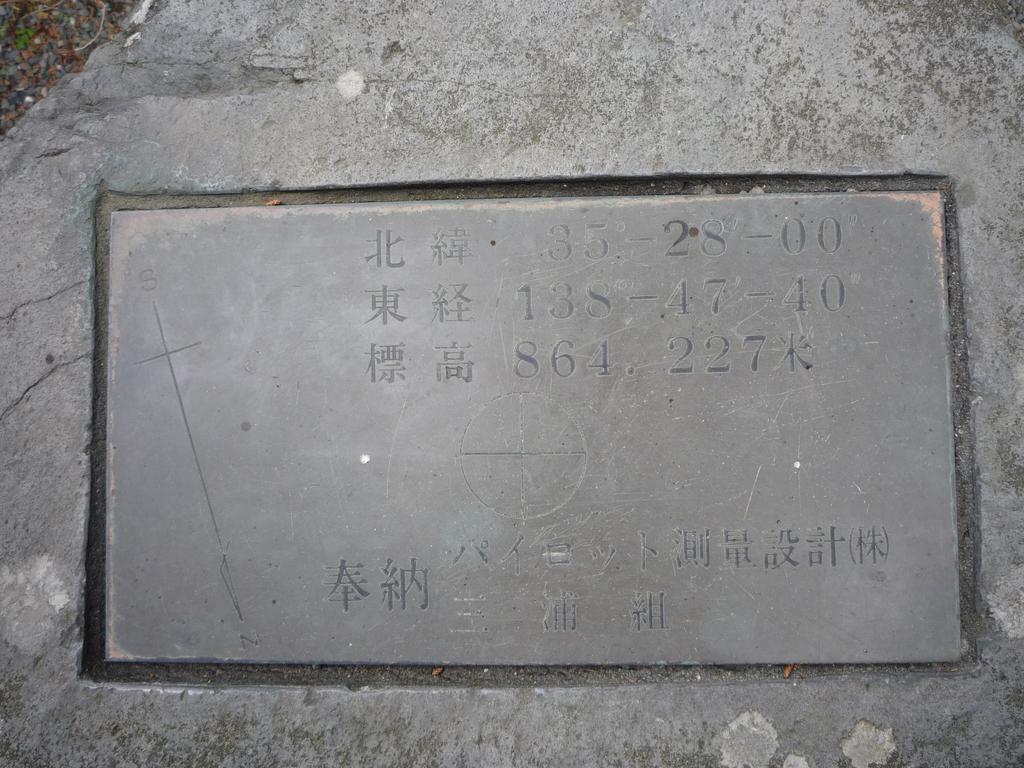 北緯 35°-28′-00″
東経 138°-47′-40″
標高 864.227米
S
N
奉納 パイロット測量設計(株)
三浦組